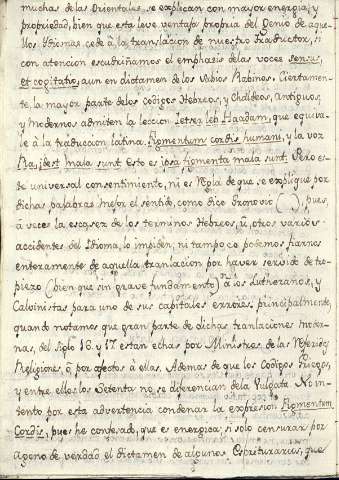 muchas de las Orientales, se explican con mayor energia, y
propriedad, bien que esta leve ventaja propria del Genio de aque-
llos Ydiomas cede à la translacion de nuestro Traductor, si
con atencion escudriñamos el emphasis de las voces sensus,
et cogitatio, aun en dictamen de los Sabios Rabinos. Ciertamen-
te, la mayor parte de los Codigos Hebreos, y Chaldeos, Antiguos,
y Modernos admiten la leccion Ietser leb Haadam, que equiva-
le à la traduccion latina Figmentum cordis humani, y la voz
Ra, idest mala sunt esto es ipsa figmenta mala sunt. Pero es-
de universal consentimiento, ni es Regla de que se explique por
dichas palabras mejor el sentido, como dice Gronovio ( ), pues
à veces la escasez de los terminos Hebreos, ù otros varios
accidentes del Idioma lo impiden, ni tampoco podemos fiarnos
enteramente de aquella tranlacion por haver servido de tro-
piezo (bien que sin grave fundamento) à los Lutheranos, y
Calvinistas para uno de sus capitales errores, principalmente,
quando notamos que gran parte de dichas tranlaciones moder-
nas, del siglo 16. y 17. estan echas por Ministros de las
Religiones, ò por afectos à ellas. Ademas de que los Codigos Griegos,
y entre ellos los Setenta no se diferencian de la Vulgata. No in-
tento por esta advertencia condenar la expresion Figmentum
Cordis, pues he confesado, que es energica; si solo censurar por
ageno de verdad el dictamen de algunos Escriturarios, que